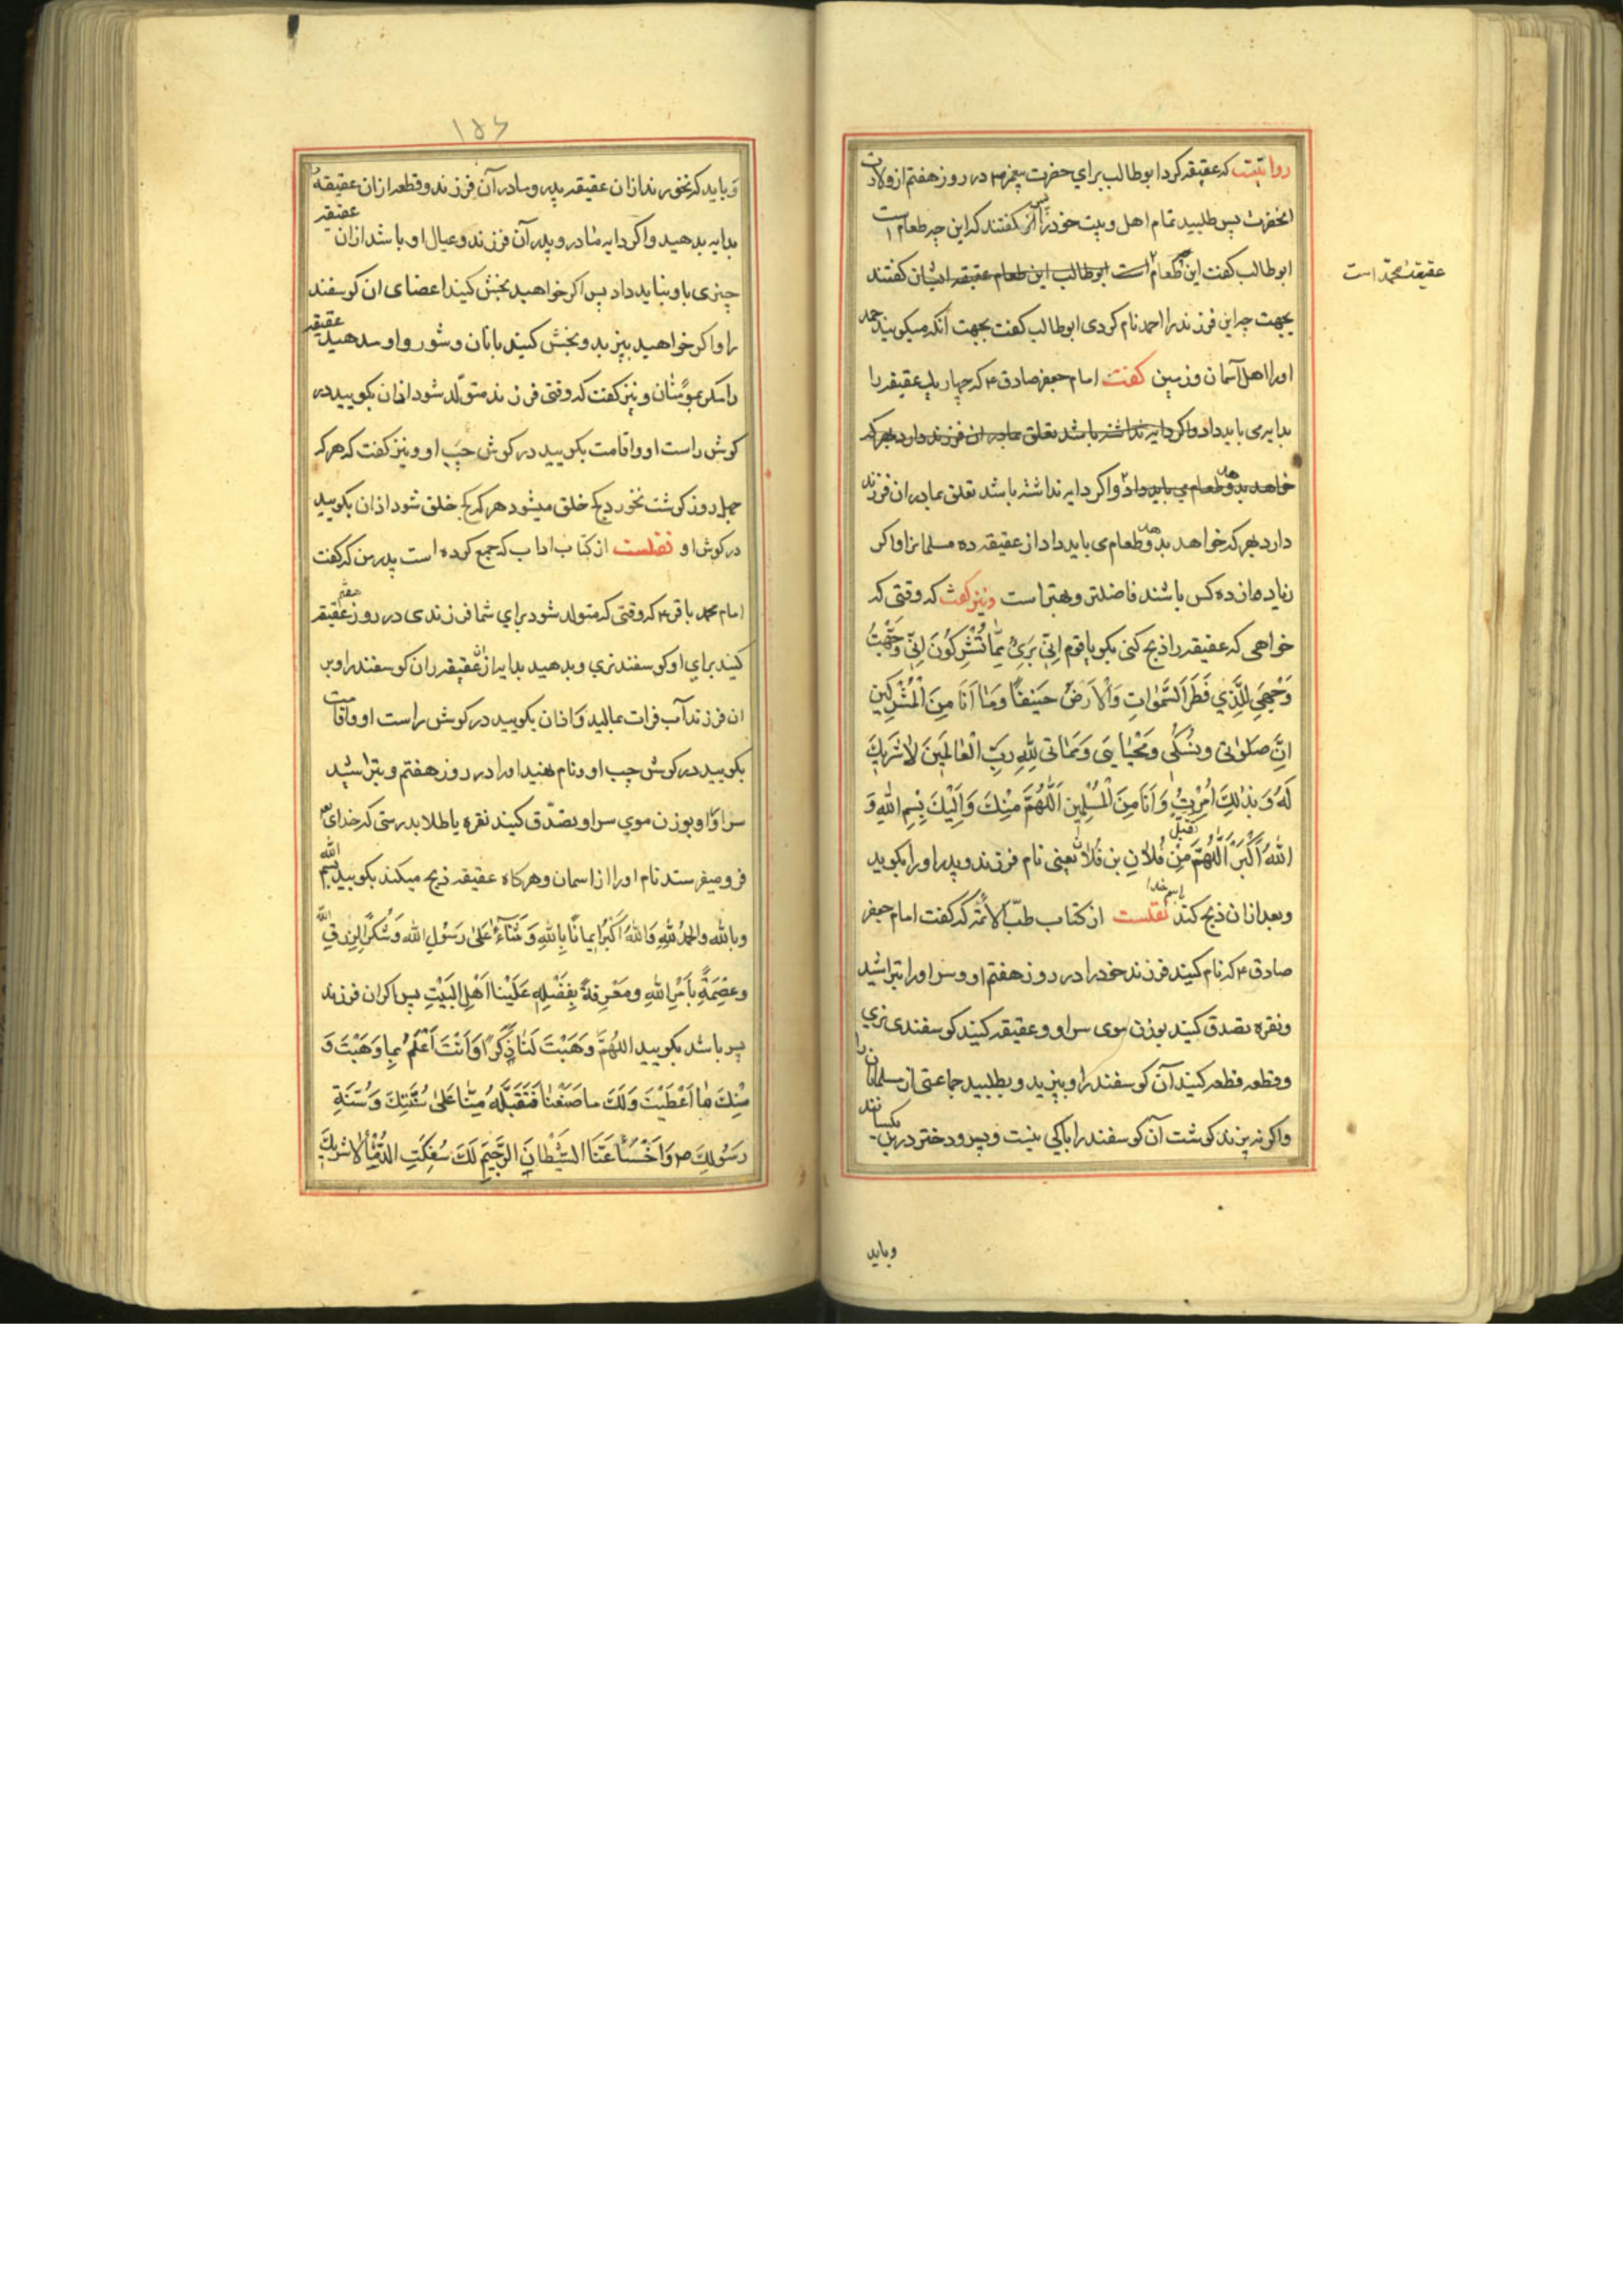 روایتست که عقیقه کرد ابوطالب برای حضرت پیغمبر ص در روز هفتم از ولادت
انحضرت پس طلبید تمام اهل و بیت خود را پس گفتند که این چه طعام است
ابوطالب کفت این طعام است ابوطالب این طعام عقیقه ایشان کفتند
عقیقهٔ محمد است
بجهت چه این فرزند را احمد نام کردی ابوطالب کفت بجهت آنکه میکویند حمد
او را اهل آسمان و زمین کفت امام جعفر صادق ع که چهار یک عقیقه را
بدایه می باید داد واکر دایه نداشته باشد تعلق بمادر ان فرزند دارد بهر که
خواهد بدهد و طعام می باید داد واکر دایه نداشته باشد تعلق بمادر ان فرزند
دارد بهر که خواهد بدهد و طعام می باید داد از عقیقه ده مسلمانرا واکر
زیاده از ده کس باشند فاضلتر و بهتر است ونیز کفت که وقتی که
خواهی که عقیقه را ذبح کنی بکو یا قوم اِنّی بَرَیٌ مِمّا تُشْرِکُونَ اِنّی وَجَّهْتُ
وَجْهِیَ لِلَّذی فَطَرَ السَّمٰواتِ وَالْاَرضَ حَنیفًا وَمٰا اَنَا مِنَ الْمُشْرِکینَ
اِنَّ صَلٰوتی ونُسُکی وَمَحْیٰایَ وَمَمٰاتی لِلّٰهِ رَبِّ الْعٰالَمینَ لاٰ شَریکَ
لَهُ وَبِذٰلِکَ اُمِرْتُ وَاَنَا مِنَ الْمُسْلِمین اَللّٰهُمَّ مِنْکَ وَاِلَیْکَ بِسْمِ اللّٰهِ وَ
اللّٰهُ اَکْبَرُ اَللّٰهُمَّ تقبّل مِنْ فُلاٰنِ بن فُلاٰن یعنی نام فرزند و پدر او را بکوید
وبعد ازان ذبح کند باسم خدا نقلست از کتاب طبّ الأئمّه که کفت امام جعفر
صادق ع که نام کنید فرزند خود را در روز هفتم او و سر او را بتراشید
ونقره تصدق کنید بوزن موی سر او و عقیقه کنید کوسفندی نری
وقطعه قطعه کنید آن کوسفند را وبپزید وبطلبید جماعتی از مسلمانان را
واکر نپزند کوشت آن کوسفند را باکی نیست و پسر و دختر درین یکسانند
وباید
۱۵۶
وباید که نخورند ازان عقیقه پدر و مادر آن فرزند وقطعه ازان عقیقه
بدایه بدهید واکر دایه مادر و پدر آن فرزند وعیال او باشد ازان عقیقه
چیزی باو نباید داد پس اکر خواهید بخش کنید اعضای ان کوسفند
را واکر خواهید بپزید وبخش کنید بانان وشوروا و مدهید عقیقه
را مکر بمؤمنان ونیز کفت که وقتی فرزند متولّد شود اذان بکویید در
کوش راست او واقامت بکویید در کوش چپ او ونیز کفت که هر که
چهل روز کوشت نخورد کج خلق میشود هر که کج خلق شود اذان بکویید
در کوش او نقلست از کتاب اداب که جمع کرده است پدر من که کفت
امام محمد باقر ع که وقتی که متولد شود برای شما فرزندی در روز هفتم عقیقه
کنید برای او کوسفند نری وبدهید بدایه از عقیقه ران کوسفند را وبر
ان فرزند آب فرات بمالید واذان بکویید در کوش راست او واقامت
بکویید در کوش چپ او ونام بنهید او را در روز هفتم وبتراشید
سر او را وبوزن موی سر او تصدّق کنید نقره یا طلا بدرستی که خدای
فرو میفرستد نام او را از اسمان وهرکاه عقیقه ذبح میکند بکویید بسم الله
وبالله والحمدُ للّٰهِ وَاللّٰهُ اَکْبَرُ ایمانًا بِاللّٰهِ وَثَنٰآءً عَلیٰ رَسُولِ اللّٰه وَشُکْرًا لِرِزقِ اللّٰه
وعِصْمَةً بِاَمْرِ اللّٰهِ ومَعْرِفَةً بِفَضْلِهِ عَلَیْنا اَهْل البَیْتِ پس اکر ان فرزند
پسر باشد بکویید اللّٰهُمَّ وَهَبْتَ لَنٰا ذَکَرًا وَاَنْتَ اَعْلَمُ بِما وَهَبْتَ وَ
مِنْکَ مٰا اَعْطَیْتَ وَلَکَ ما صَنَعْنٰا فَتَقَبَّلْهُ مِنّٰا عَلیٰ سُنَّتِکَ وَسُنَّةِ
رَسُولِکَ ص وَاخْسَأْ عَنَّا الشَّیْطانَ الرَّجیمَ لَکَ سُفِکَتِ الدِّمٰاءُ لاٰ شریکَ